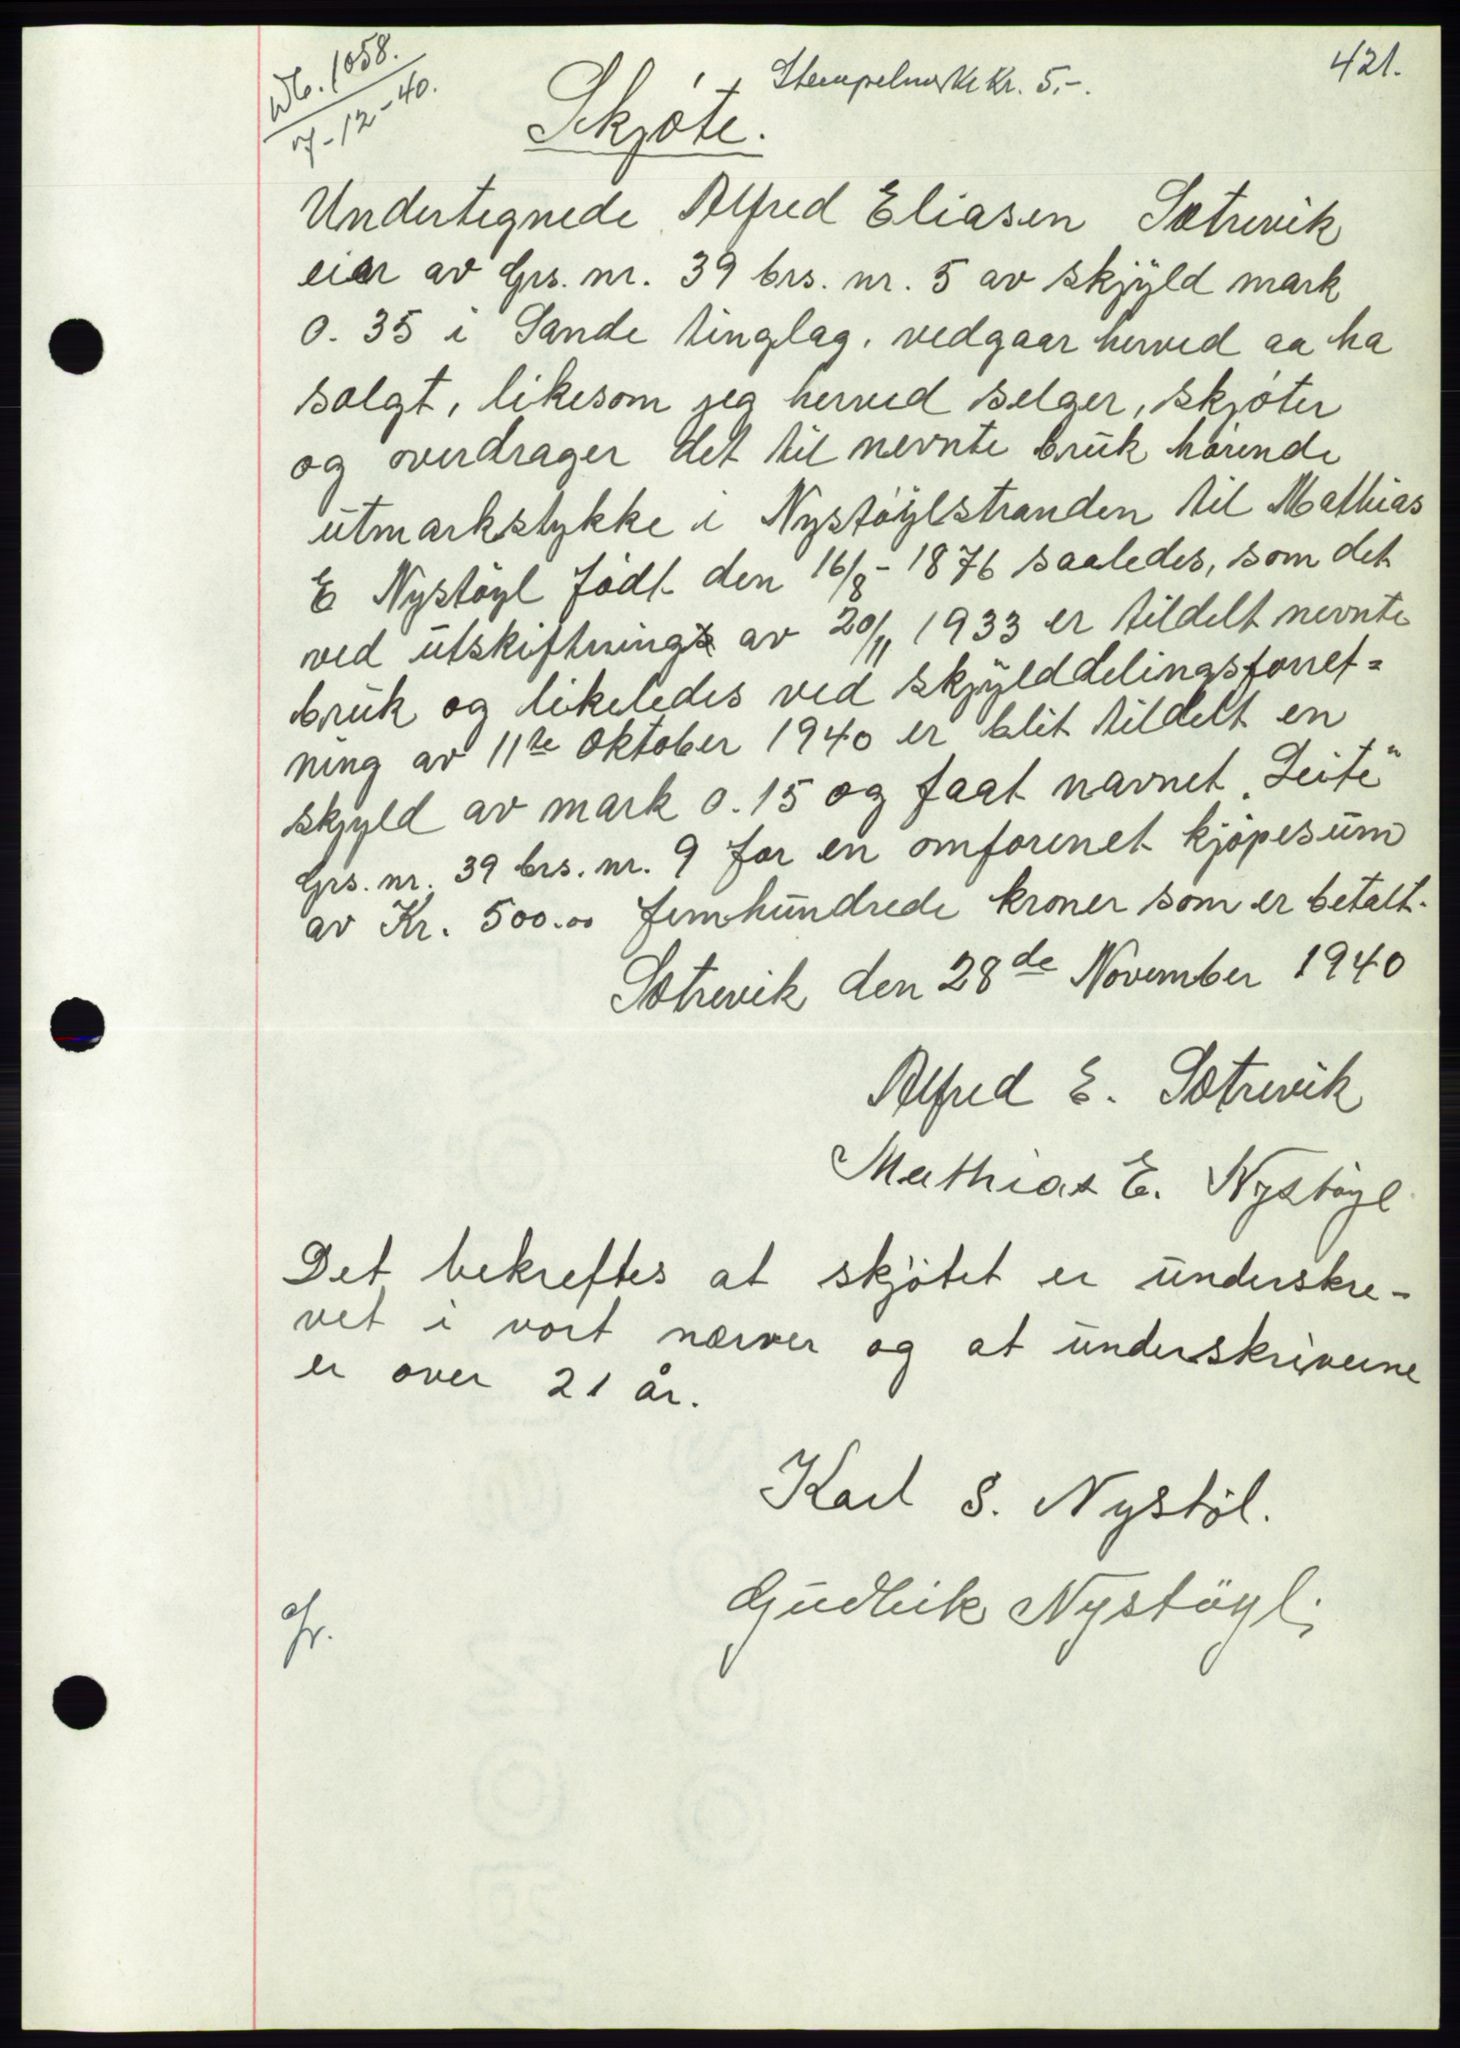 421.
Db. 1058.
7-12-40.
Stempelmerke Kr. 5,-.
Skjøte.
Undertegnede Alfred Eliasen Sætrevik
eier av Grs. nr. 39 brs. nr. 5 av skjyld mark
0.35 i Sande tinglag. vedgaar herved aa ha
solgt, likesom jeg herved selger, skjøter
og overdrager det til nevnte bruk hørende
utmarkstykke i Nystøylstranden til Mathias
E Nystøyl født den 16/8-1876 saaledes, som det
ved utskiftning av 20/11 1933 er tildelt nevnte
bruk og likeledes ved skjylddelingsforret=
ning av 11te Oktober 1940 er blit tildelt en
skjyld av mark 0.15 og faat navnet „Leite"
Grs. nr. 39 brs. nr. 9 for en omforenet kjøpesum
av Kr. 500.00 femhundrede kroner som er betalt.
Sætrevik den 28de November 1940
Alfred E. Sætrevik
Mathias E. Nystøyl
Det bekreftes at skjøtet er underskre-
vet i vort nærver og at underskriverne
er over 21 år.
Karl S. Nystøl.
Gudleik Nystøyl.